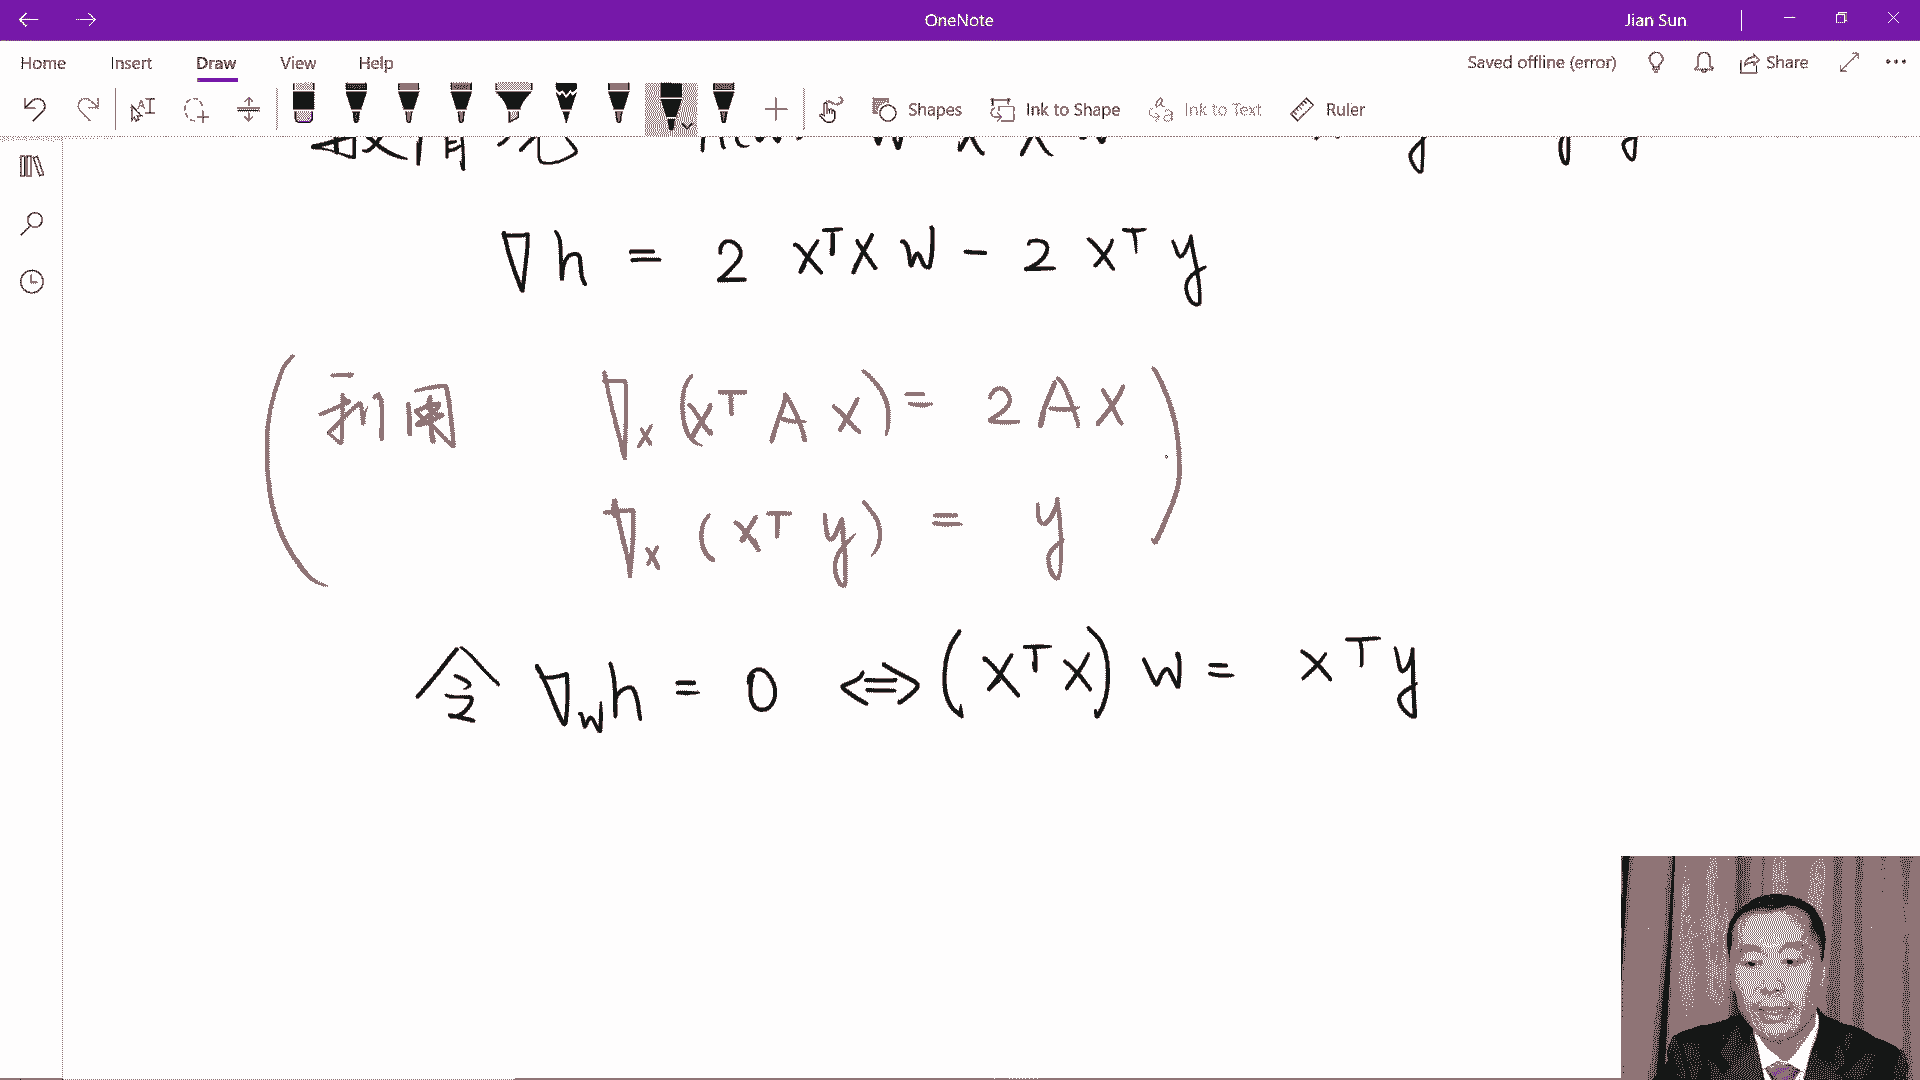 OneNote
Jian Sun
Home Insert Draw View Help
Saved offline (error) Share
Shapes Ink to Shape Ink to Text Ruler
∇h = 2 XᵀX w - 2 Xᵀ y
( 利用 ∇ₓ (xᵀ A x) = 2 A x
∇ₓ (xᵀ y) = y )
令 ∇_w h = 0 ⟺ (XᵀX) w = Xᵀ y